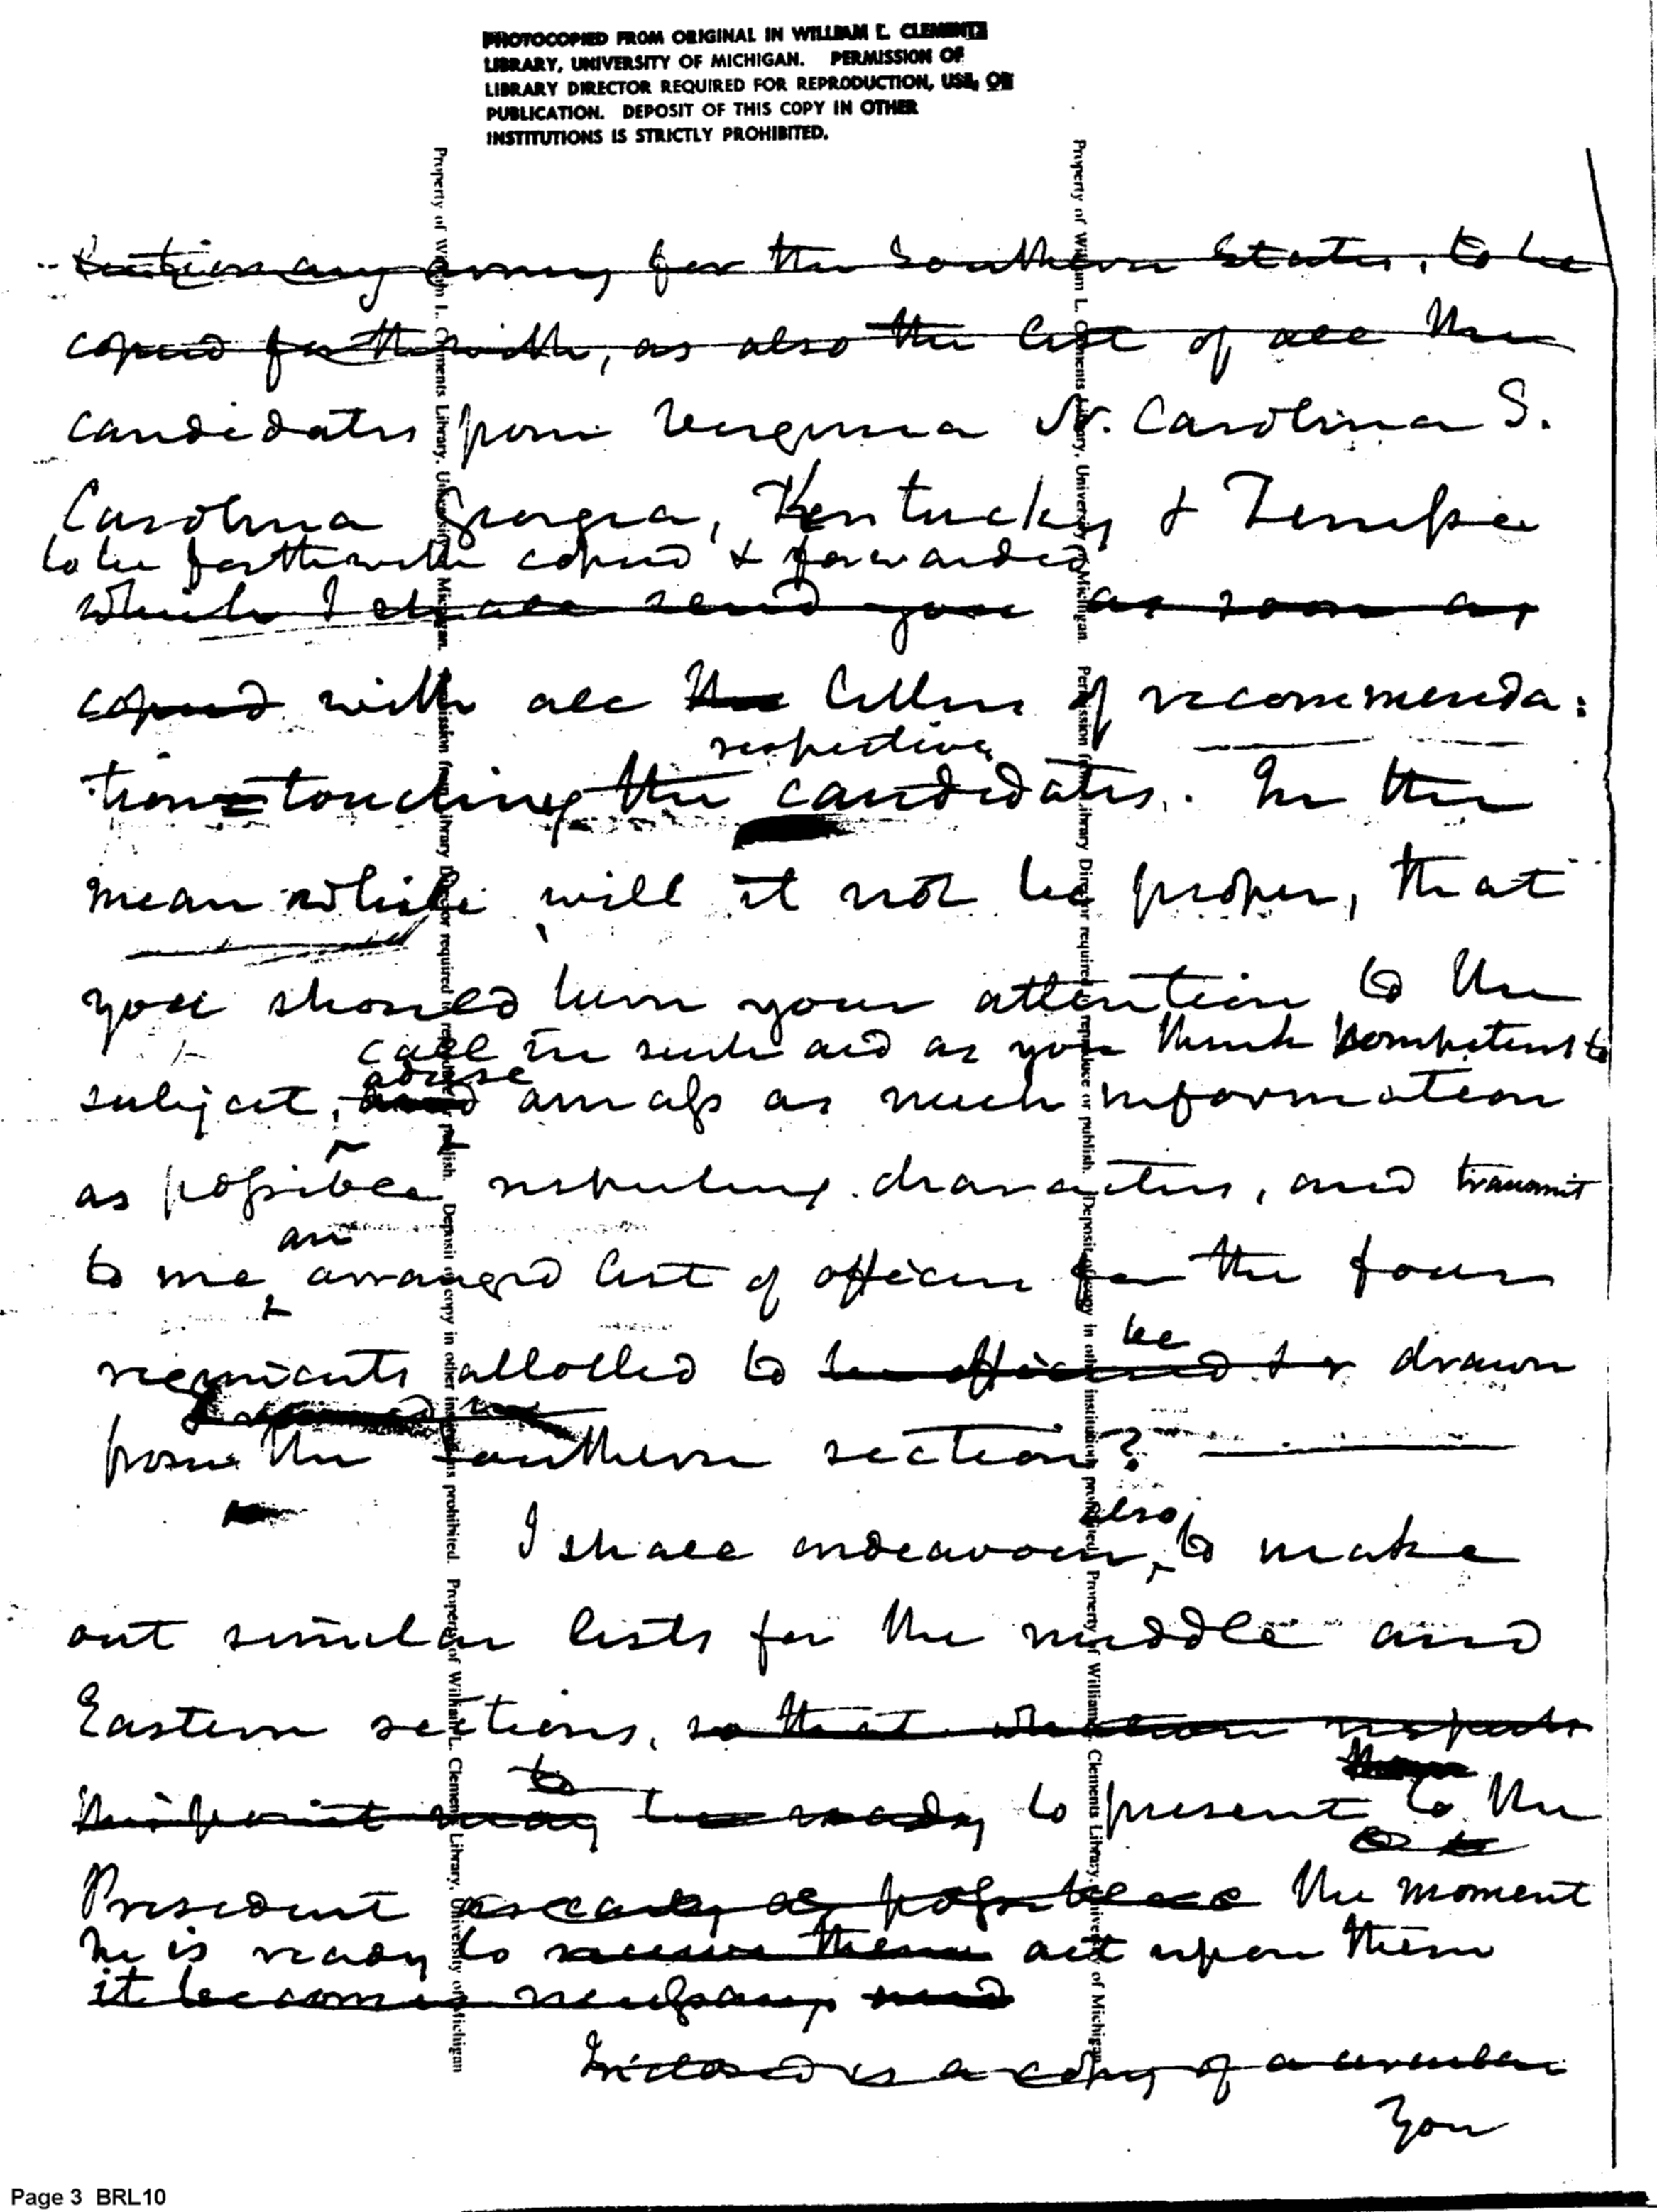 PHOTOCOPIED FROM ORIGINAL IN WILLIAM L. CLEMENTS
LIBRARY, UNIVERSITY OF MICHIGAN. PERMISSION OF
LIBRARY DIRECTOR REQUIRED FOR REPRODUCTION, USE, OR
PUBLICATION. DEPOSIT OF THIS COPY IN OTHER
INSTITUTIONS IS STRICTLY PROHIBITED.
army for the Southern States, to be
copied forthwith, as also the list of all the
candidates from Virginia N. Carolina S.
Carolina Georgia, Kentucky & Tennessee
to be forthwith copied & forwarded
which I shall send you as soon as
copied with all the letters of recommenda:
tion touching the respective candidates. In the
mean while will it not be proper, that
you should turn your attention to the
call in such aid as you think competent to
advise
subject, and amass as much information
as possible respecting characters, and transmit
to me an arranged list of officers for the four
regiments allotted to be officered & drawn
be
from the Southern section?
I shall endeavour, also to make
out similar lists for the middle and
Eastern sections, so that respects
this point may be ready to present to the
to
them
President as early as possible the moment
he is ready to receive them act upon them
it becomes necessary
Inclosed is a copy of a circular
You
Property of William L. Clements Library, University of Michigan. Permission from Library Director required to reproduce or publish. Deposit of copy in other institutions prohibited. Property of William L. Clements Library, University of Michigan
Property of William L. Clements Library, University of Michigan. Permission from Library Director required to reproduce or publish. Deposit of copy in other institutions prohibited. Property of William L. Clements Library, University of Michigan
Page 3 BRL10